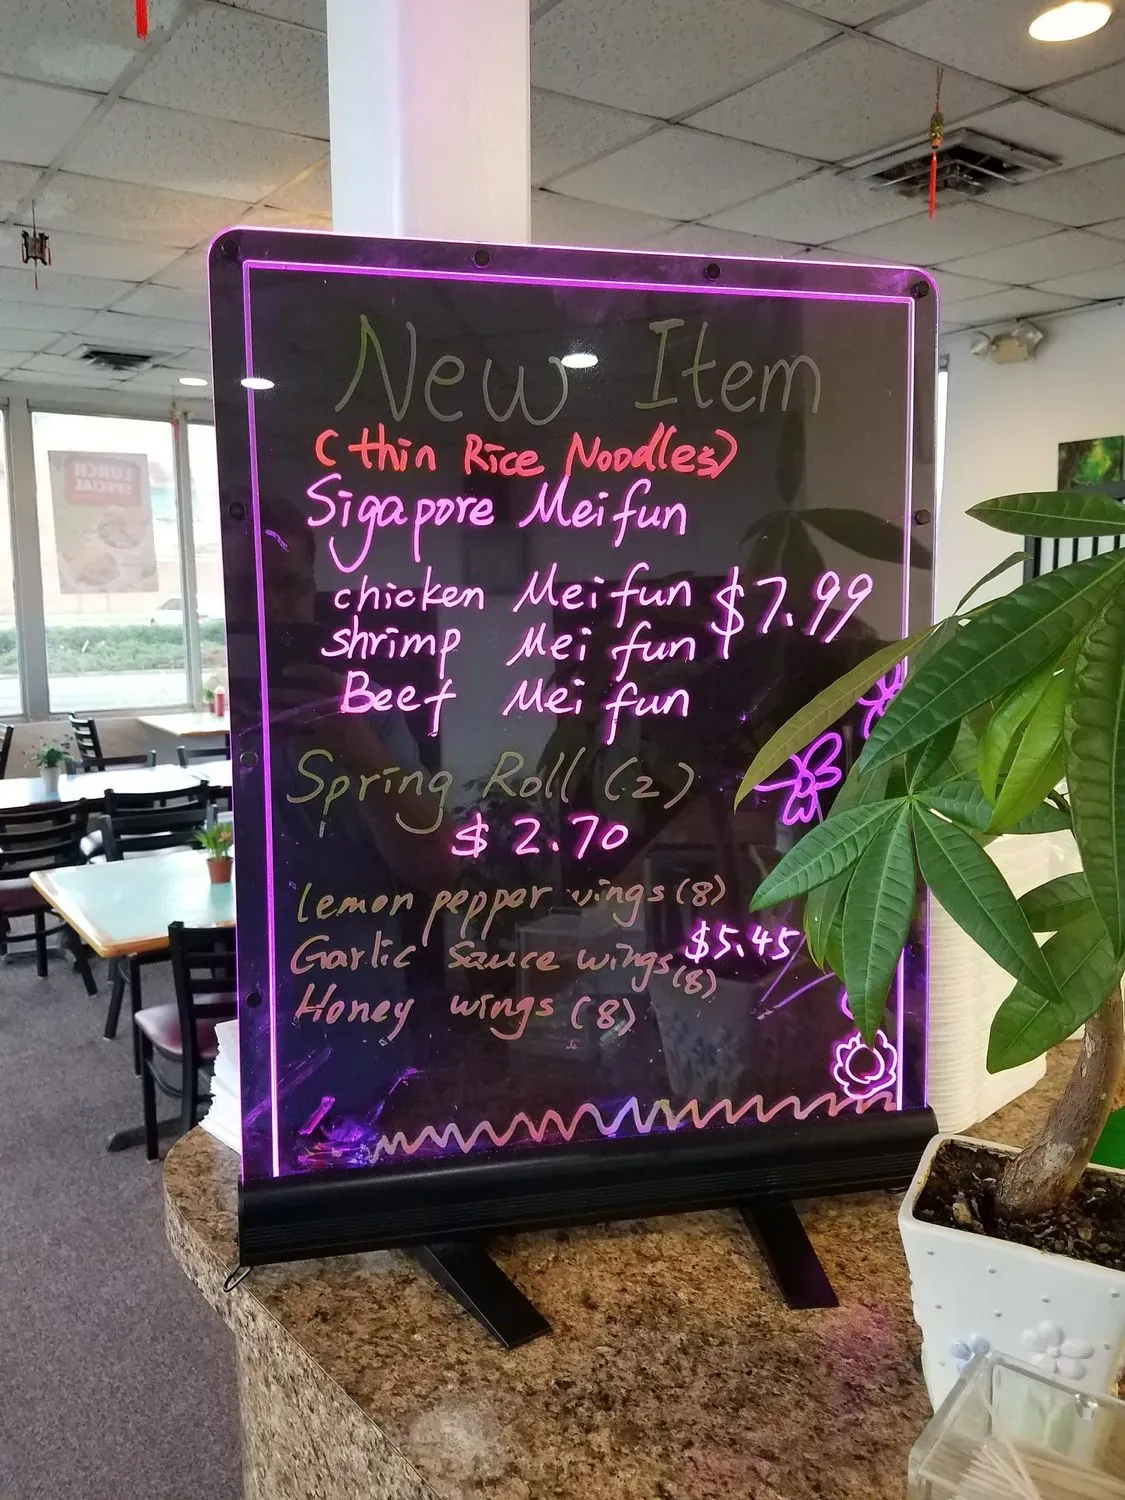 New Item
(thin Rice Noodles)
Sigapore Mei fun
chicken Mei fun $7.99
shrimp Mei fun
Beef Mei fun
Spring Roll (2)
$2.70
lemon pepper wings (8)
Garlic Sauce wings (8) $5.45
Honey wings (8)
LUNCH
SPECIAL